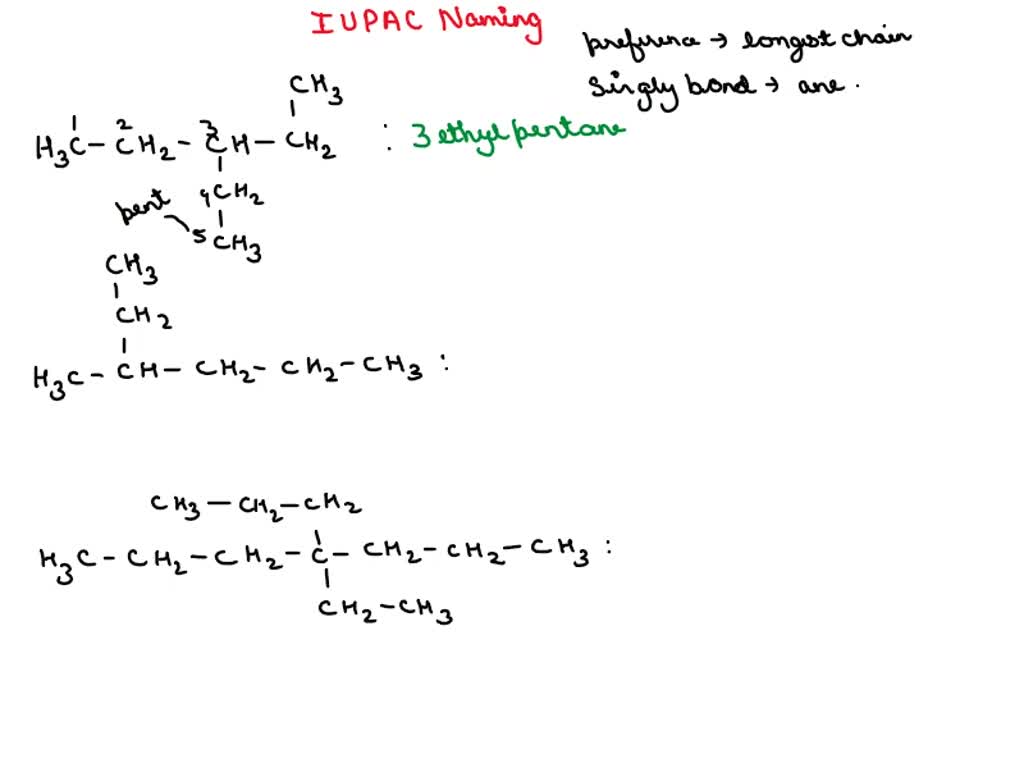 IUPAC Naming
preference → longest chain
Singly bond → ane.
CH3
1 2 3
H3C - CH2 - CH - CH2 : 3 ethyl pentane
4 CH2
pent
5 CH3
CH3
CH2
H3C - CH - CH2 - CH2 - CH3 :
CH3 - CH2 - CH2
H3C - CH2 - CH2 - C - CH2 - CH2 - CH3 :
CH2 - CH3